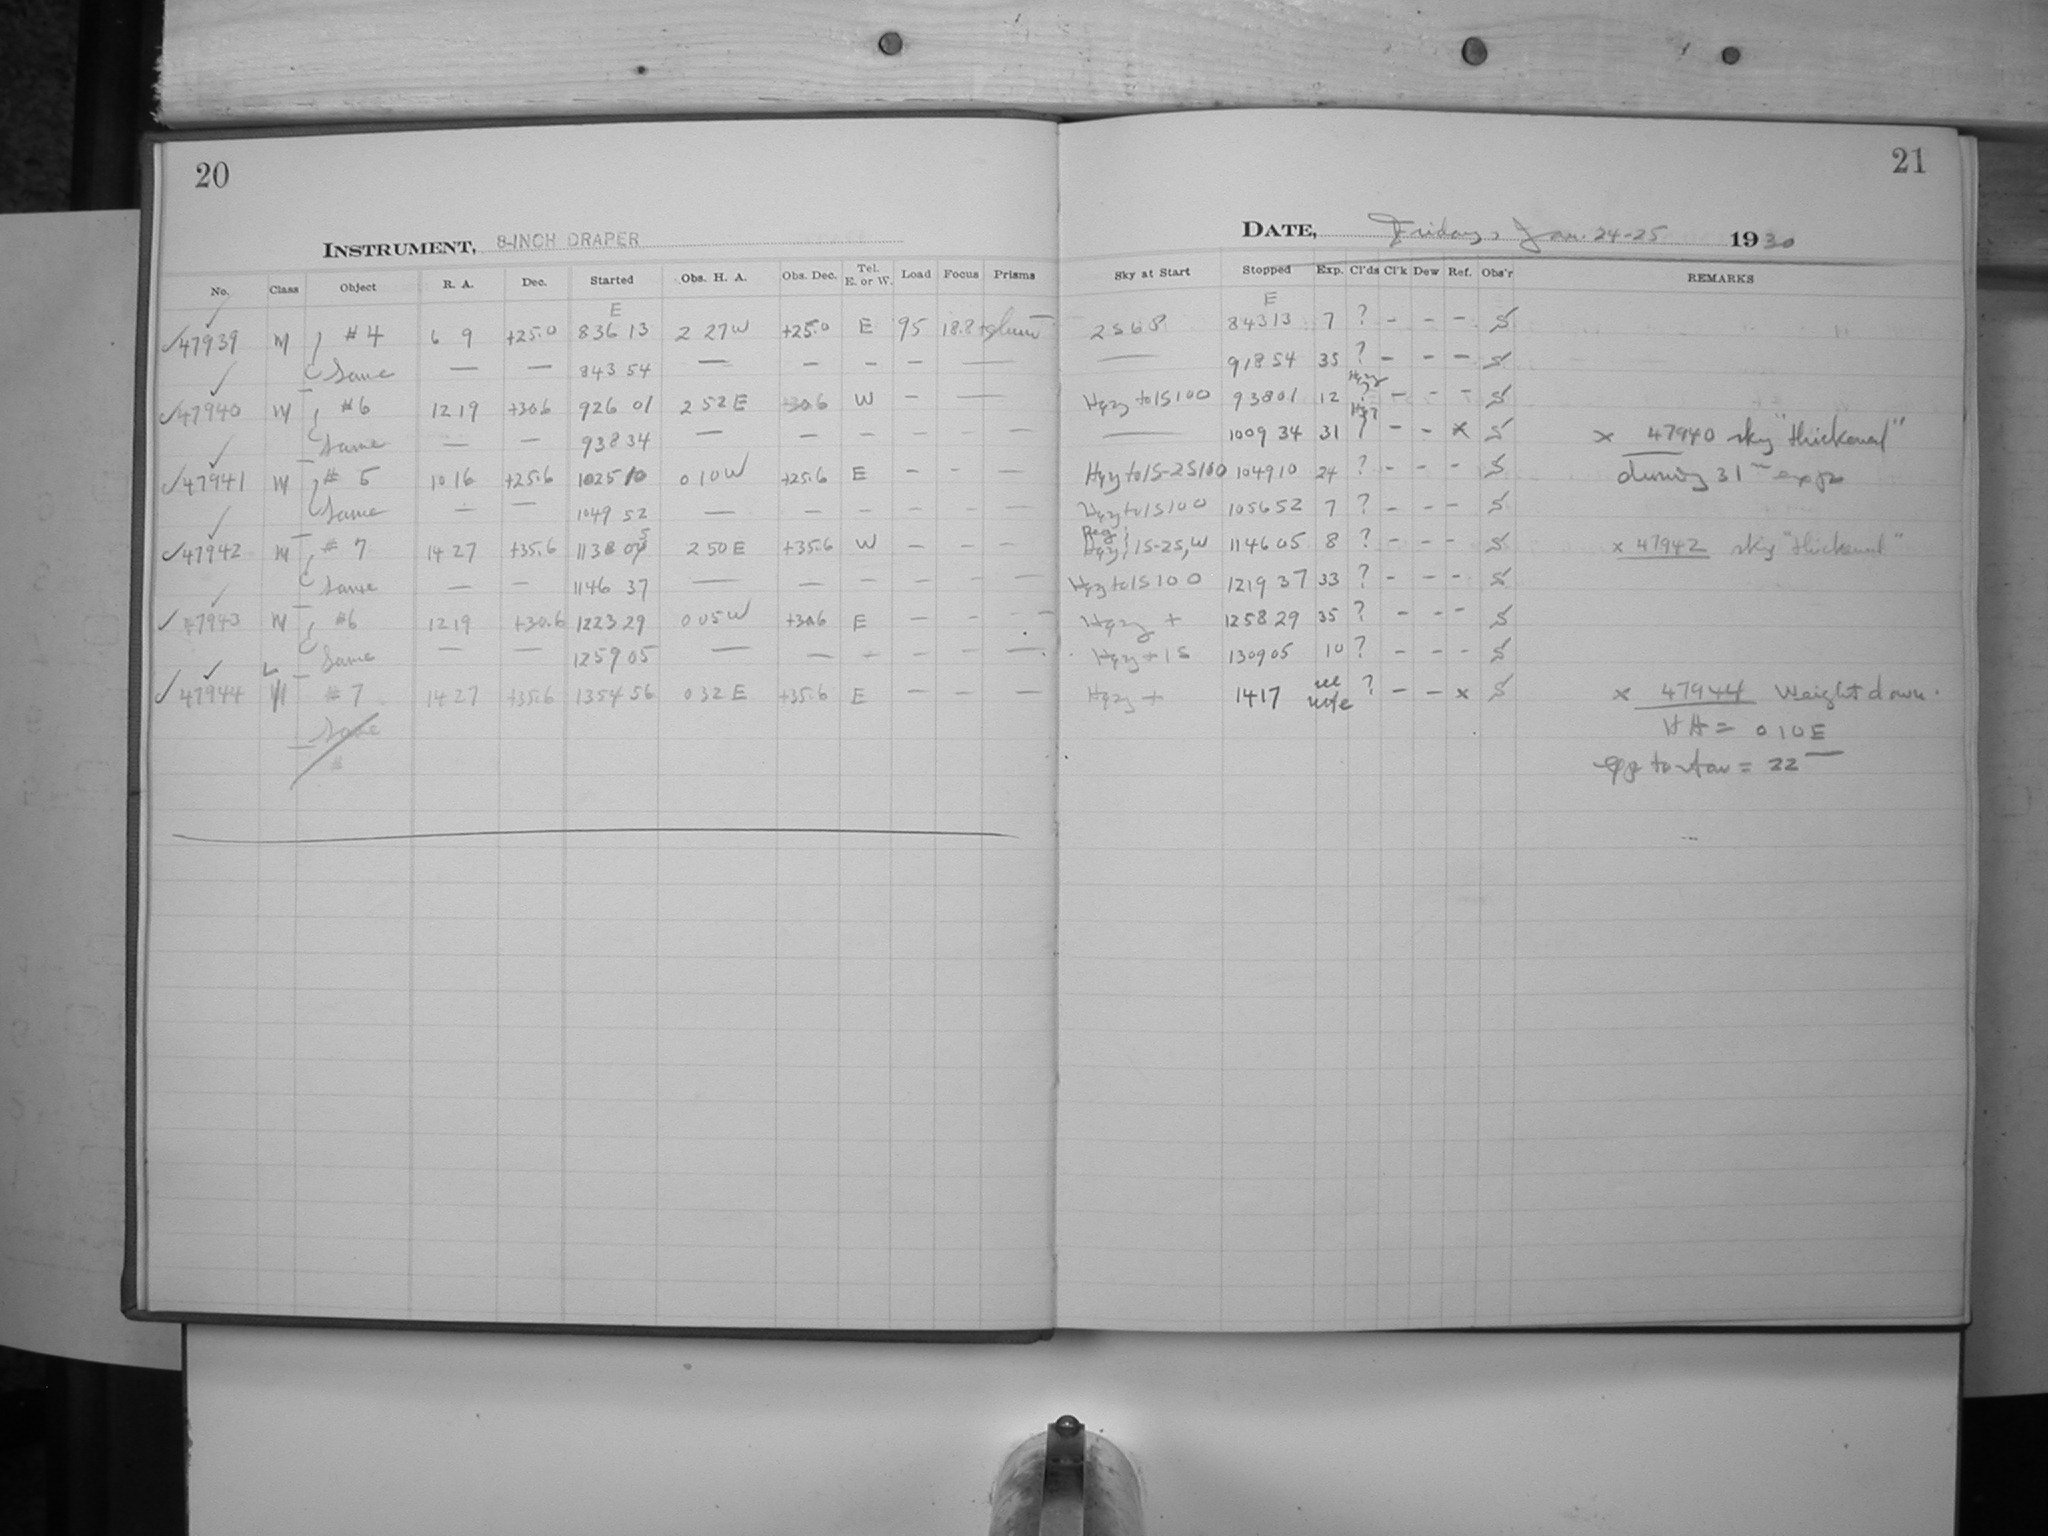 20
INSTRUMENT, 8-INCH DRAPER
No. Class Object R. A. Dec. Started Obs. H. A. Obs. Dec. Tel. E. or W. Load Focus Prisms
E
47939 M #4 6 9 +25.0 836 13 2 27 W +25.0 E 95 18.8
Same — — 843 54 — — — — —
47940 M #6 12 19 +30.6 926 01 2 52 E +30.6 W — —
Same — — 938 34 — — — — — —
47941 M #5 10 16 +25.6 1025 10 0 10 W +25.6 E — — —
Same — — 1049 52 — — — — — —
47942 M #7 14 27 +35.6 1138 05 2 50 E +35.6 W — — —
Same — — 1146 37 — — — — — —
47943 M #6 12 19 +30.6 1223 29 0 05 W +30.6 E — — —
Same — — 1259 05 — — — — — —
47944 #7 14 27 +35.6 1354 56 0 32 E +35.6 E — — —
Same
#
21
DATE, Friday, Jan. 24-25 1930
Sky at Start Stopped Exp. Cl'ds Cl'k Dew Ref. Obs'r REMARKS
E
2568 843 13 7 ? — — — S
— 918 54 35 ? — — — S
Hazy to 15 100 938 01 12 Hazy ? — — — S
— 1009 34 31 Hzy ? — — x S x 47940 sky "thickened"
Hzy to 15-25 100 1049 10 24 ? — — — S during 31m exp
Hazy to 15 100 1056 52 7 ? — — — S
Hazy, 15-25, W 1146 05 8 ? — — — S x 47942 sky "thickened"
Hzy to 15 100 1219 37 33 ? — — — S
Hazy + 1258 29 35 ? — — — S
Hazy + 15 1309 05 10 ? — — — S
Hazy + 1417 see note ? — — x S x 47944 Weight down.
HA = 0 10 E
= 22